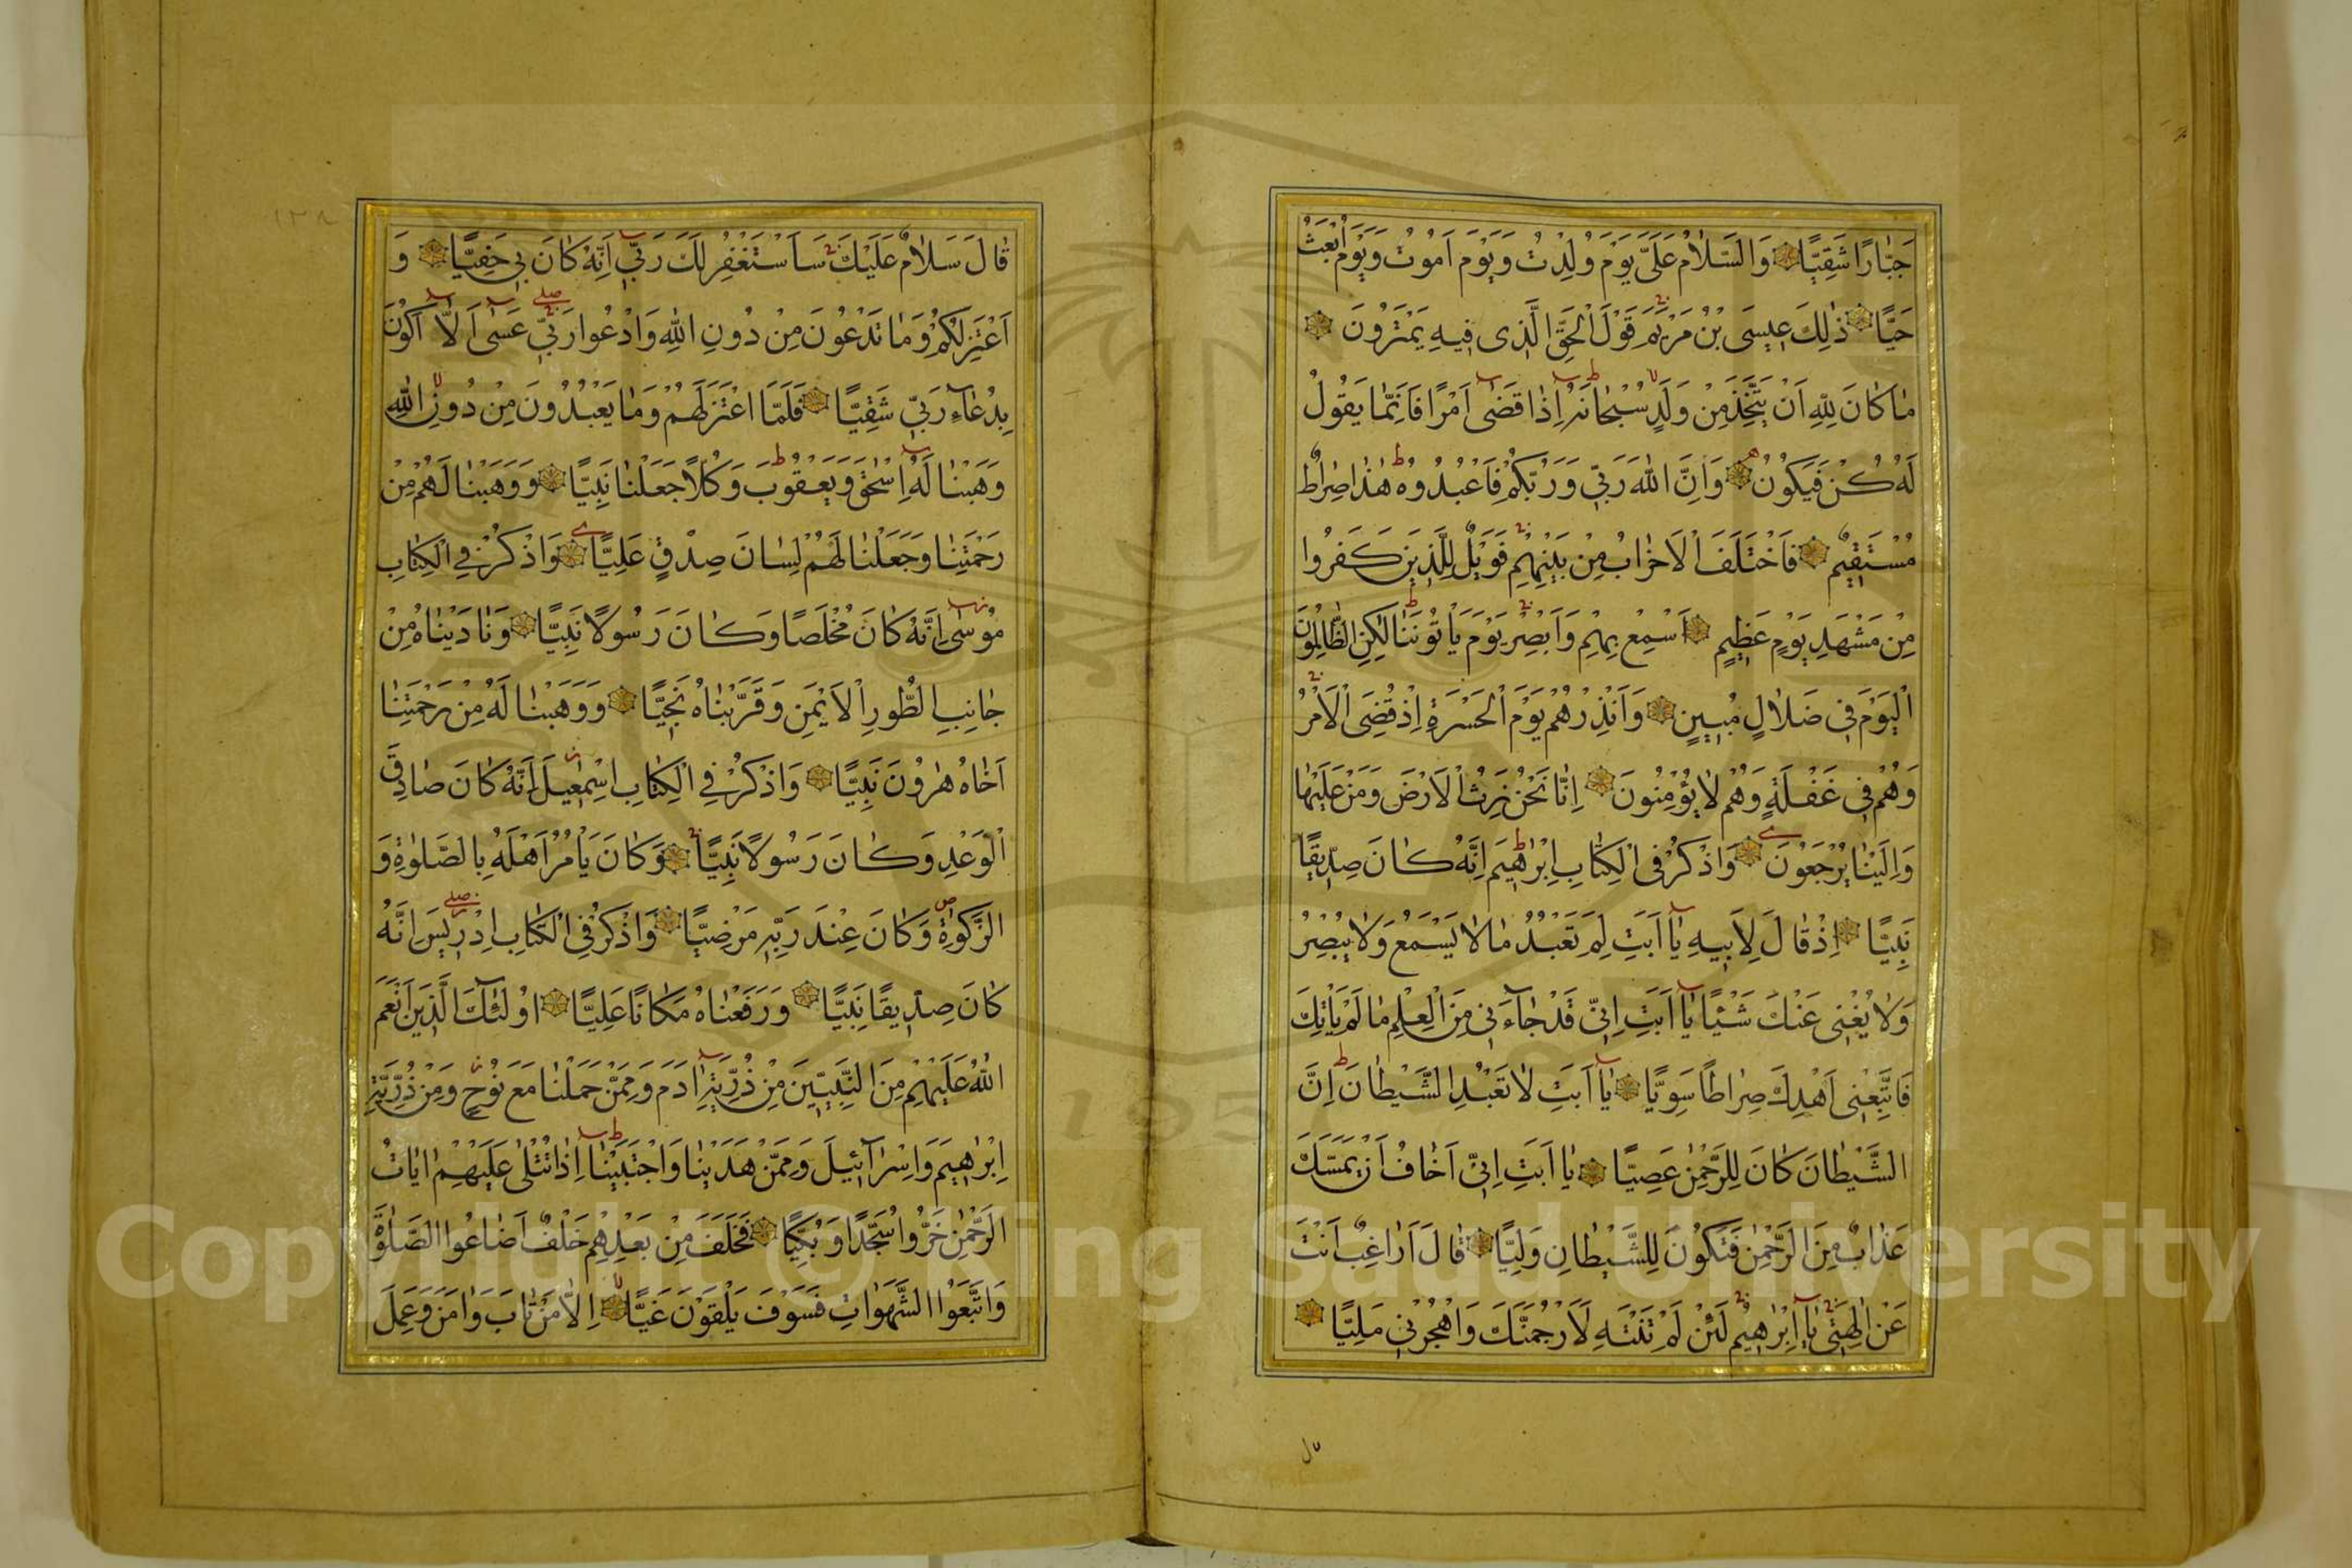 جَبّٰارًا شَقِيًّا وَالسَّلٰامُ عَلَيَّ يَوْمَ وُلِدْتُ وَيَوْمَ اَمُوتُ وَيَوْمَ اُبْعَثُ
حَيًّا ذٰلِكَ عٖيسَى بْنُ مَرْيَمَ قَوْلَ الْحَقِّ الَّذٖى فٖيهِ يَمْتَرُونَ
مٰا كٰانَ لِلّٰهِ اَنْ يَتَّخِذَ مِنْ وَلَدٍ سُبْحٰانَهُ اِذٰا قَضٰى اَمْرًا فَاِنَّمٰا يَقُولُ
لَهُ كُنْ فَيَكُونُ وَاِنَّ اللّٰهَ رَبّٖى وَرَبُّكُمْ فَاعْبُدُوهُ هٰذٰا صِرٰاطٌ
مُسْتَقٖيمٌ فَاخْتَلَفَ الْاَحْزٰابُ مِنْ بَيْنِهِمْ فَوَيْلٌ لِلَّذٖينَ كَفَرُوا
مِنْ مَشْهَدِ يَوْمٍ عَظٖيمٍ اَسْمِعْ بِهِمْ وَاَبْصِرْ يَوْمَ يَأْتُونَنٰا لٰكِنِ الظّٰالِمُونَ
الْيَوْمَ فٖى ضَلٰالٍ مُبٖينٍ وَاَنْذِرْهُمْ يَوْمَ الْحَسْرَةِ اِذْ قُضِىَ الْاَمْرُ
وَهُمْ فٖى غَفْلَةٍ وَهُمْ لٰا يُؤْمِنُونَ اِنّٰا نَحْنُ نَرِثُ الْاَرْضَ وَمَنْ عَلَيْهٰا
وَاِلَيْنٰا يُرْجَعُونَ وَاذْكُرْ فِى الْكِتٰابِ اِبْرٰهٖيمَ اِنَّهُ كٰانَ صِدّٖيقًا
نَبِيًّا اِذْ قٰالَ لِاَبٖيهِ يٰا اَبَتِ لِمَ تَعْبُدُ مٰا لٰا يَسْمَعُ وَلٰا يُبْصِرُ
وَلٰا يُغْنٖى عَنْكَ شَيْئًا يٰا اَبَتِ اِنّٖى قَدْ جٰاءَنٖى مِنَ الْعِلْمِ مٰا لَمْ يَأْتِكَ
فَاتَّبِعْنٖى اَهْدِكَ صِرٰاطًا سَوِيًّا يٰا اَبَتِ لٰا تَعْبُدِ الشَّيْطٰانَ اِنَّ
الشَّيْطٰانَ كٰانَ لِلرَّحْمٰنِ عَصِيًّا يٰا اَبَتِ اِنّٖى اَخٰافُ اَنْ يَمَسَّكَ
عَذٰابٌ مِنَ الرَّحْمٰنِ فَتَكُونَ لِلشَّيْطٰانِ وَلِيًّا قٰالَ اَرٰاغِبٌ اَنْتَ
عَنْ اٰلِهَتٖى يٰا اِبْرٰهٖيمُ لَئِنْ لَمْ تَنْتَهِ لَاَرْجُمَنَّكَ وَاهْجُرْنٖى مَلِيًّا
قٰالَ سَلٰامٌ عَلَيْكَ سَاَسْتَغْفِرُ لَكَ رَبّٖى اِنَّهُ كٰانَ بٖى حَفِيًّا وَ
اَعْتَزِلُكُمْ وَمٰا تَدْعُونَ مِنْ دُونِ اللّٰهِ وَاَدْعُوا رَبّٖى عَسٰى اَلّٰا اَكُونَ
بِدُعٰاءِ رَبّٖى شَقِيًّا فَلَمَّا اعْتَزَلَهُمْ وَمٰا يَعْبُدُونَ مِنْ دُونِ اللّٰهِ
وَهَبْنٰا لَهُ اِسْحٰقَ وَيَعْقُوبَ وَكُلًّا جَعَلْنٰا نَبِيًّا وَوَهَبْنٰا لَهُمْ مِنْ
رَحْمَتِنٰا وَجَعَلْنٰا لَهُمْ لِسٰانَ صِدْقٍ عَلِيًّا وَاذْكُرْ فِى الْكِتٰابِ
مُوسٰى اِنَّهُ كٰانَ مُخْلَصًا وَكٰانَ رَسُولًا نَبِيًّا وَنٰادَيْنٰاهُ مِنْ
جٰانِبِ الطُّورِ الْاَيْمَنِ وَقَرَّبْنٰاهُ نَجِيًّا وَوَهَبْنٰا لَهُ مِنْ رَحْمَتِنٰا
اَخٰاهُ هٰرُونَ نَبِيًّا وَاذْكُرْ فِى الْكِتٰابِ اِسْمٰعٖيلَ اِنَّهُ كٰانَ صٰادِقَ
الْوَعْدِ وَكٰانَ رَسُولًا نَبِيًّا وَكٰانَ يَأْمُرُ اَهْلَهُ بِالصَّلٰوةِ وَ
الزَّكٰوةِ وَكٰانَ عِنْدَ رَبِّهٖ مَرْضِيًّا وَاذْكُرْ فِى الْكِتٰابِ اِدْرٖيسَ اِنَّهُ
كٰانَ صِدّٖيقًا نَبِيًّا وَرَفَعْنٰاهُ مَكٰانًا عَلِيًّا اُولٰئِكَ الَّذٖينَ اَنْعَمَ
اللّٰهُ عَلَيْهِمْ مِنَ النَّبِيّٖينَ مِنْ ذُرِّيَّةِ اٰدَمَ وَمِمَّنْ حَمَلْنٰا مَعَ نُوحٍ وَمِنْ ذُرِّيَّةِ
اِبْرٰهٖيمَ وَاِسْرٰائٖيلَ وَمِمَّنْ هَدَيْنٰا وَاجْتَبَيْنٰا اِذٰا تُتْلٰى عَلَيْهِمْ اٰيٰاتُ
الرَّحْمٰنِ خَرُّوا سُجَّدًا وَبُكِيًّا فَخَلَفَ مِنْ بَعْدِهِمْ خَلْفٌ اَضٰاعُوا الصَّلٰوةَ
وَاتَّبَعُوا الشَّهَوٰاتِ فَسَوْفَ يَلْقَوْنَ غَيًّا اِلّٰا مَنْ تٰابَ وَاٰمَنَ وَعَمِلَ
١٢٨
Copyright © King Saud University